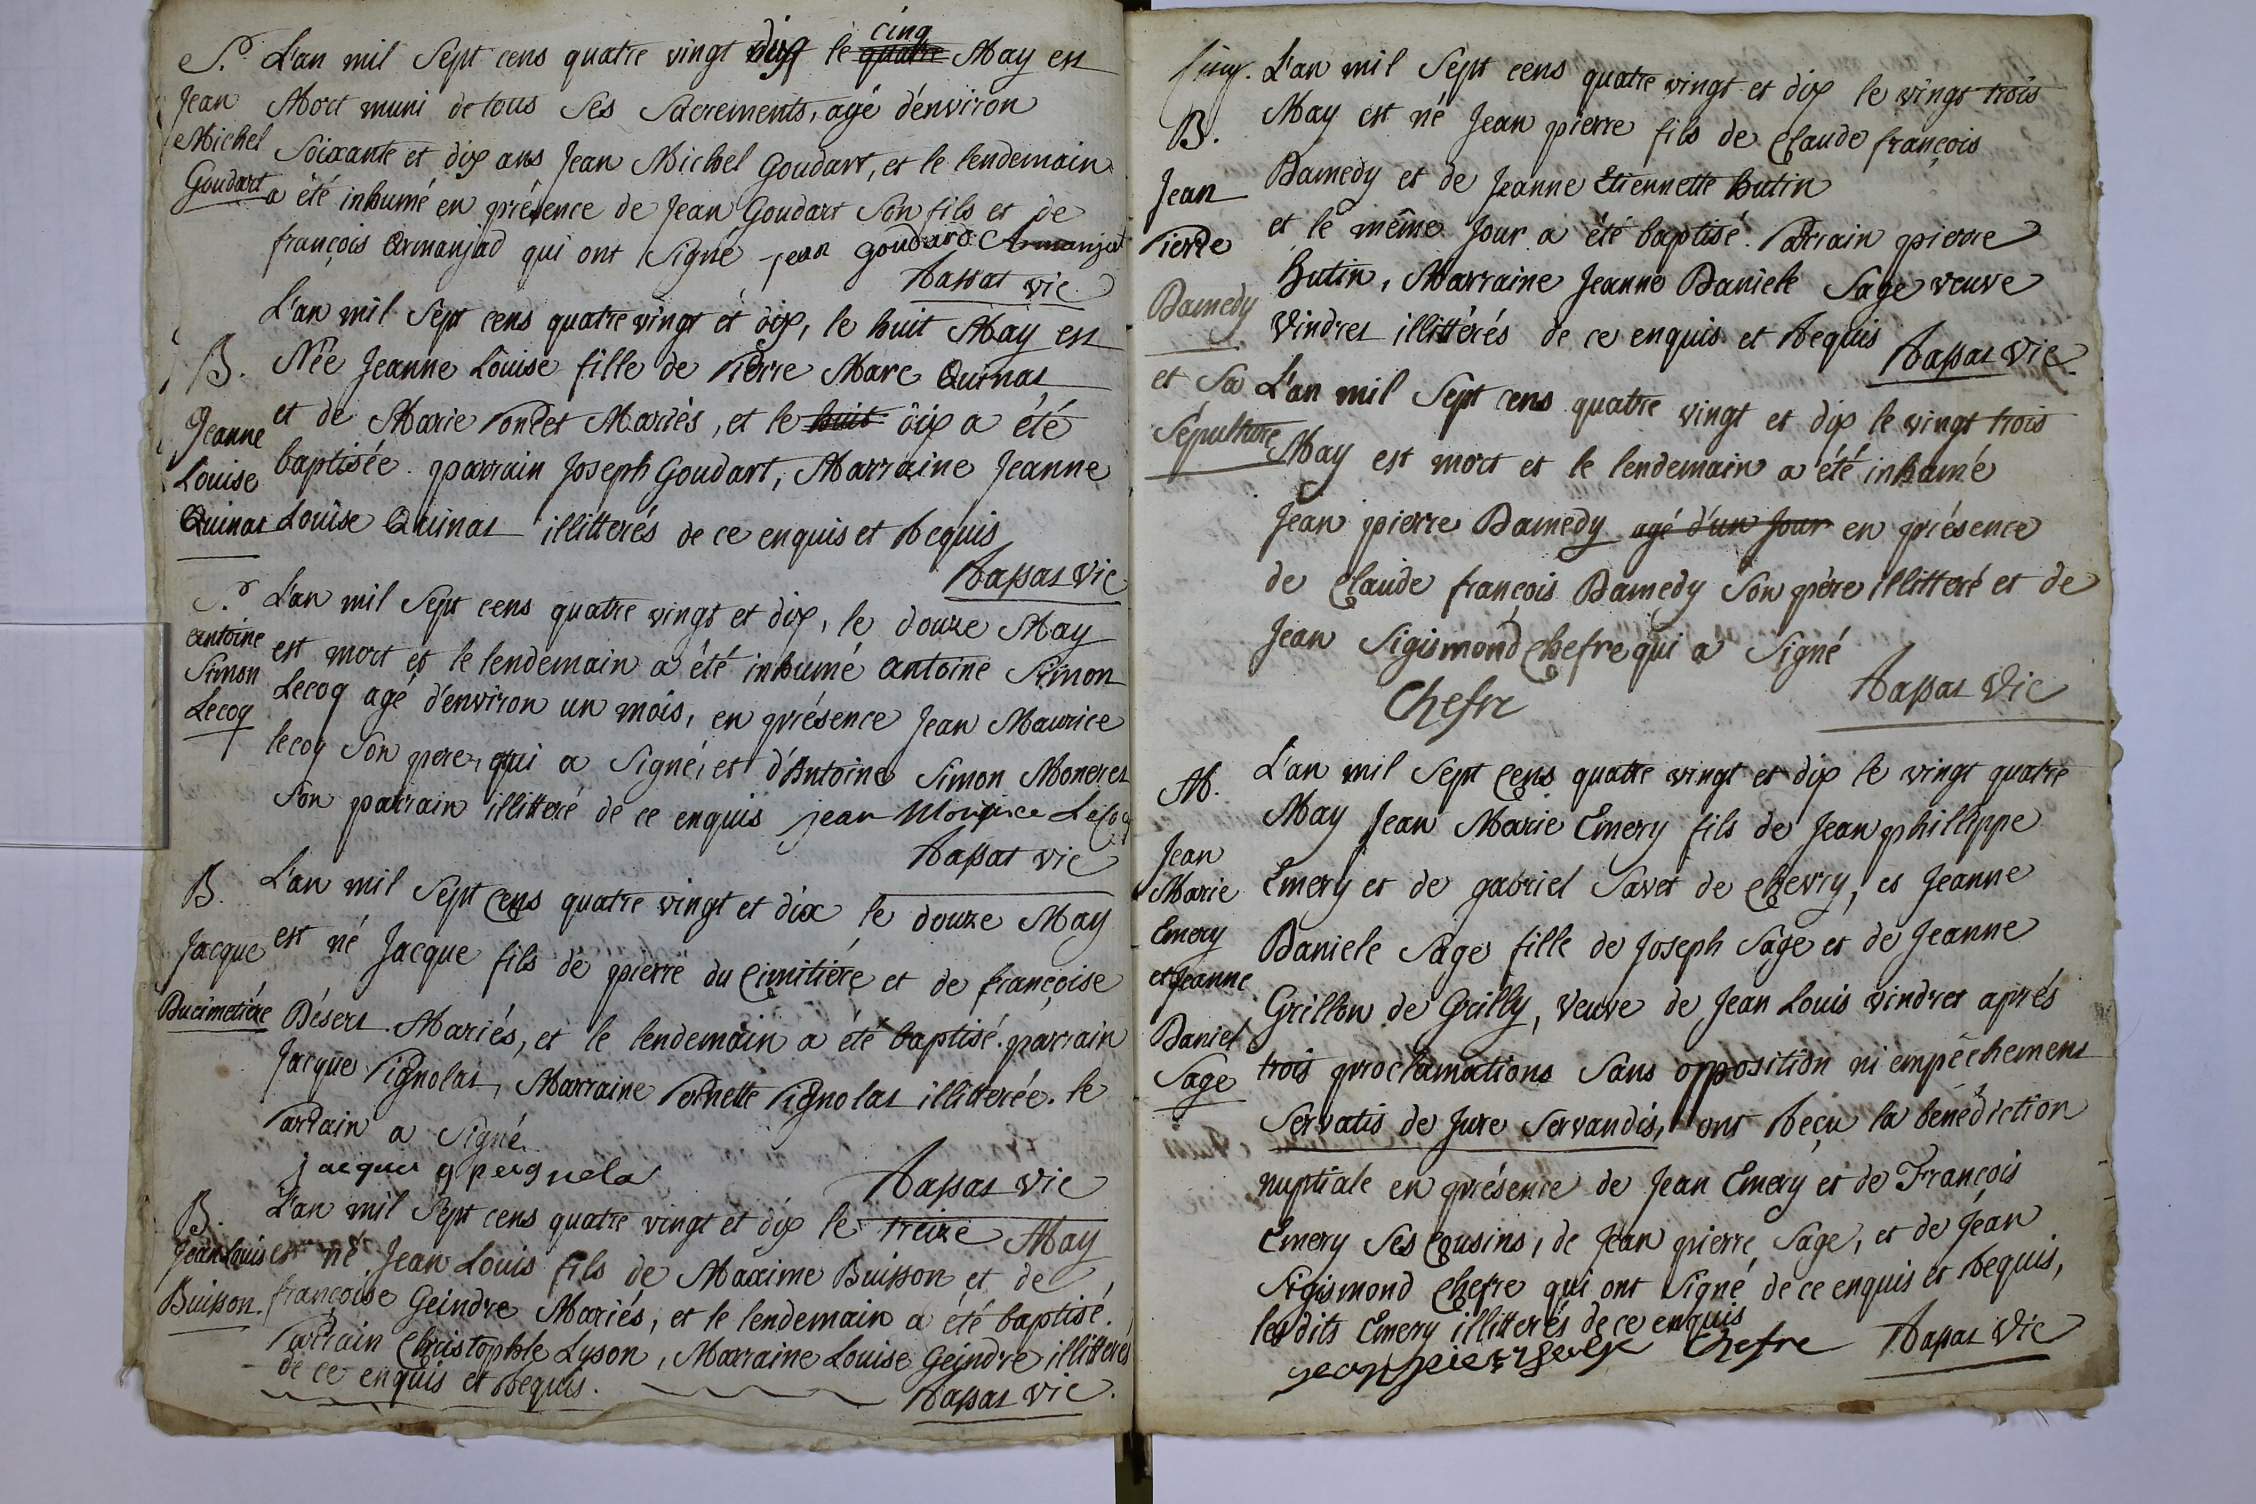 S.re L'an mil Sept cens quatre vingt dix le quatre cinq May est
Jean Mort muni de tous Ses Sacrements, agé d'environ
Michel Soixante et dix ans Jean Michel Goudart, et le lendemain
Goudart a été inhumé en présence de Jean Goudart Son fils et de
françois Armanjad qui ont Signé jean goudard Armanjat
Passat vic
L'an mil Sept cens quatre vingt et dix, le huit May est
B. Née Jeanne Louise fille de Pierre Marc Quinat
et de Marie Poncet Mariés, et le huit dix a été
Jeanne baptisée. parrain Joseph Goudart, Marraine Jeanne
Louise
Quinat Louise Quinat illitterés de ce enquis et Requis
Passat vic
S.re L'an mil Sept cens quatre vingt et dix, le douze May
antoine est mort et le lendemain a été inhumé antoine Simon
Simon Lecoq agé d'environ un mois, en présence Jean Maurice
Lecoq lecoq Son pere, qui a Signé, et d'Antoine Simon Moneret
Son parrain illitteré de ce enquis jean Morice Lecoq
Passat vic
B. L'an mil Sept cens quatre vingt et dix le douze May
Jacque est né Jacque fils de pierre du Cimitiére et de françoise
Ducimetiére Désert Mariés, et le lendemain a été baptisé. parrain
Jacque Pignolat, Marraine Pernette Pignolat illitterée. le
Parrain a Signé
jacques peignela
Passat vic
B. L'an mil Sept cens quatre vingt et dix le treize May
Jean Louis est né Jean Louis fils de Maxime Buisson et de
Buisson. françoise Geindre Mariés, et le lendemain a été baptisé.
Parrain Christophle Lyson, Marraine Louise Geindre illitterés
de ce enquis et Requis.
Passat vic.
Cinq. L'an mil Sept cens quatre vingt et dix le vingt trois
B. May est né Jean pierre fils de Claude françois
Jean Damedy et de Jeanne Etiennette hutin
Pierre et le même Jour a été baptisé. Parrain pierre
Damedy hutin, Marraine Jeanne Daniele Sage veuve
Vindret illittérés de ce enquis et Requis Passat Vic.
et Sa L'an mil Sept cens quatre vingt et dix le vingt trois
Sépulture May est mort et le lendemain a été inhumé
Jean pierre Damedy agé d'un Jour en présence
de Claude françois Damedy Son père illitteré et de
Jean Sigismond Chefre qui a Signé
Chefre Passat Vic
M. L'an mil Sept cens quatre vingt et dix le vingt quatre
May Jean Marie Emery fils de Jean phillippe
Jean
Marie Emery et de gabriel Savet de Chevry, et Jeanne
Emery Daniele Sage fille de Joseph Sage et de Jeanne
et Jeanne Grillon de Grilly, Veuve de Jean Louis vindret aprés
Daniel trois proclamations Sans opposition ni empêchement
Sage Servatis de Jure Servandis, ont Reçu la bénédiction
nuptiale en présence de Jean Emery et de François
Emery Ses Cousins, de Jean pierre Sage, et de Jean
Sigismond Chefre qui ont Signé de ce enquis et Requis,
lesdits Emery illitterés de ce enquis
Chefre Passat Vic